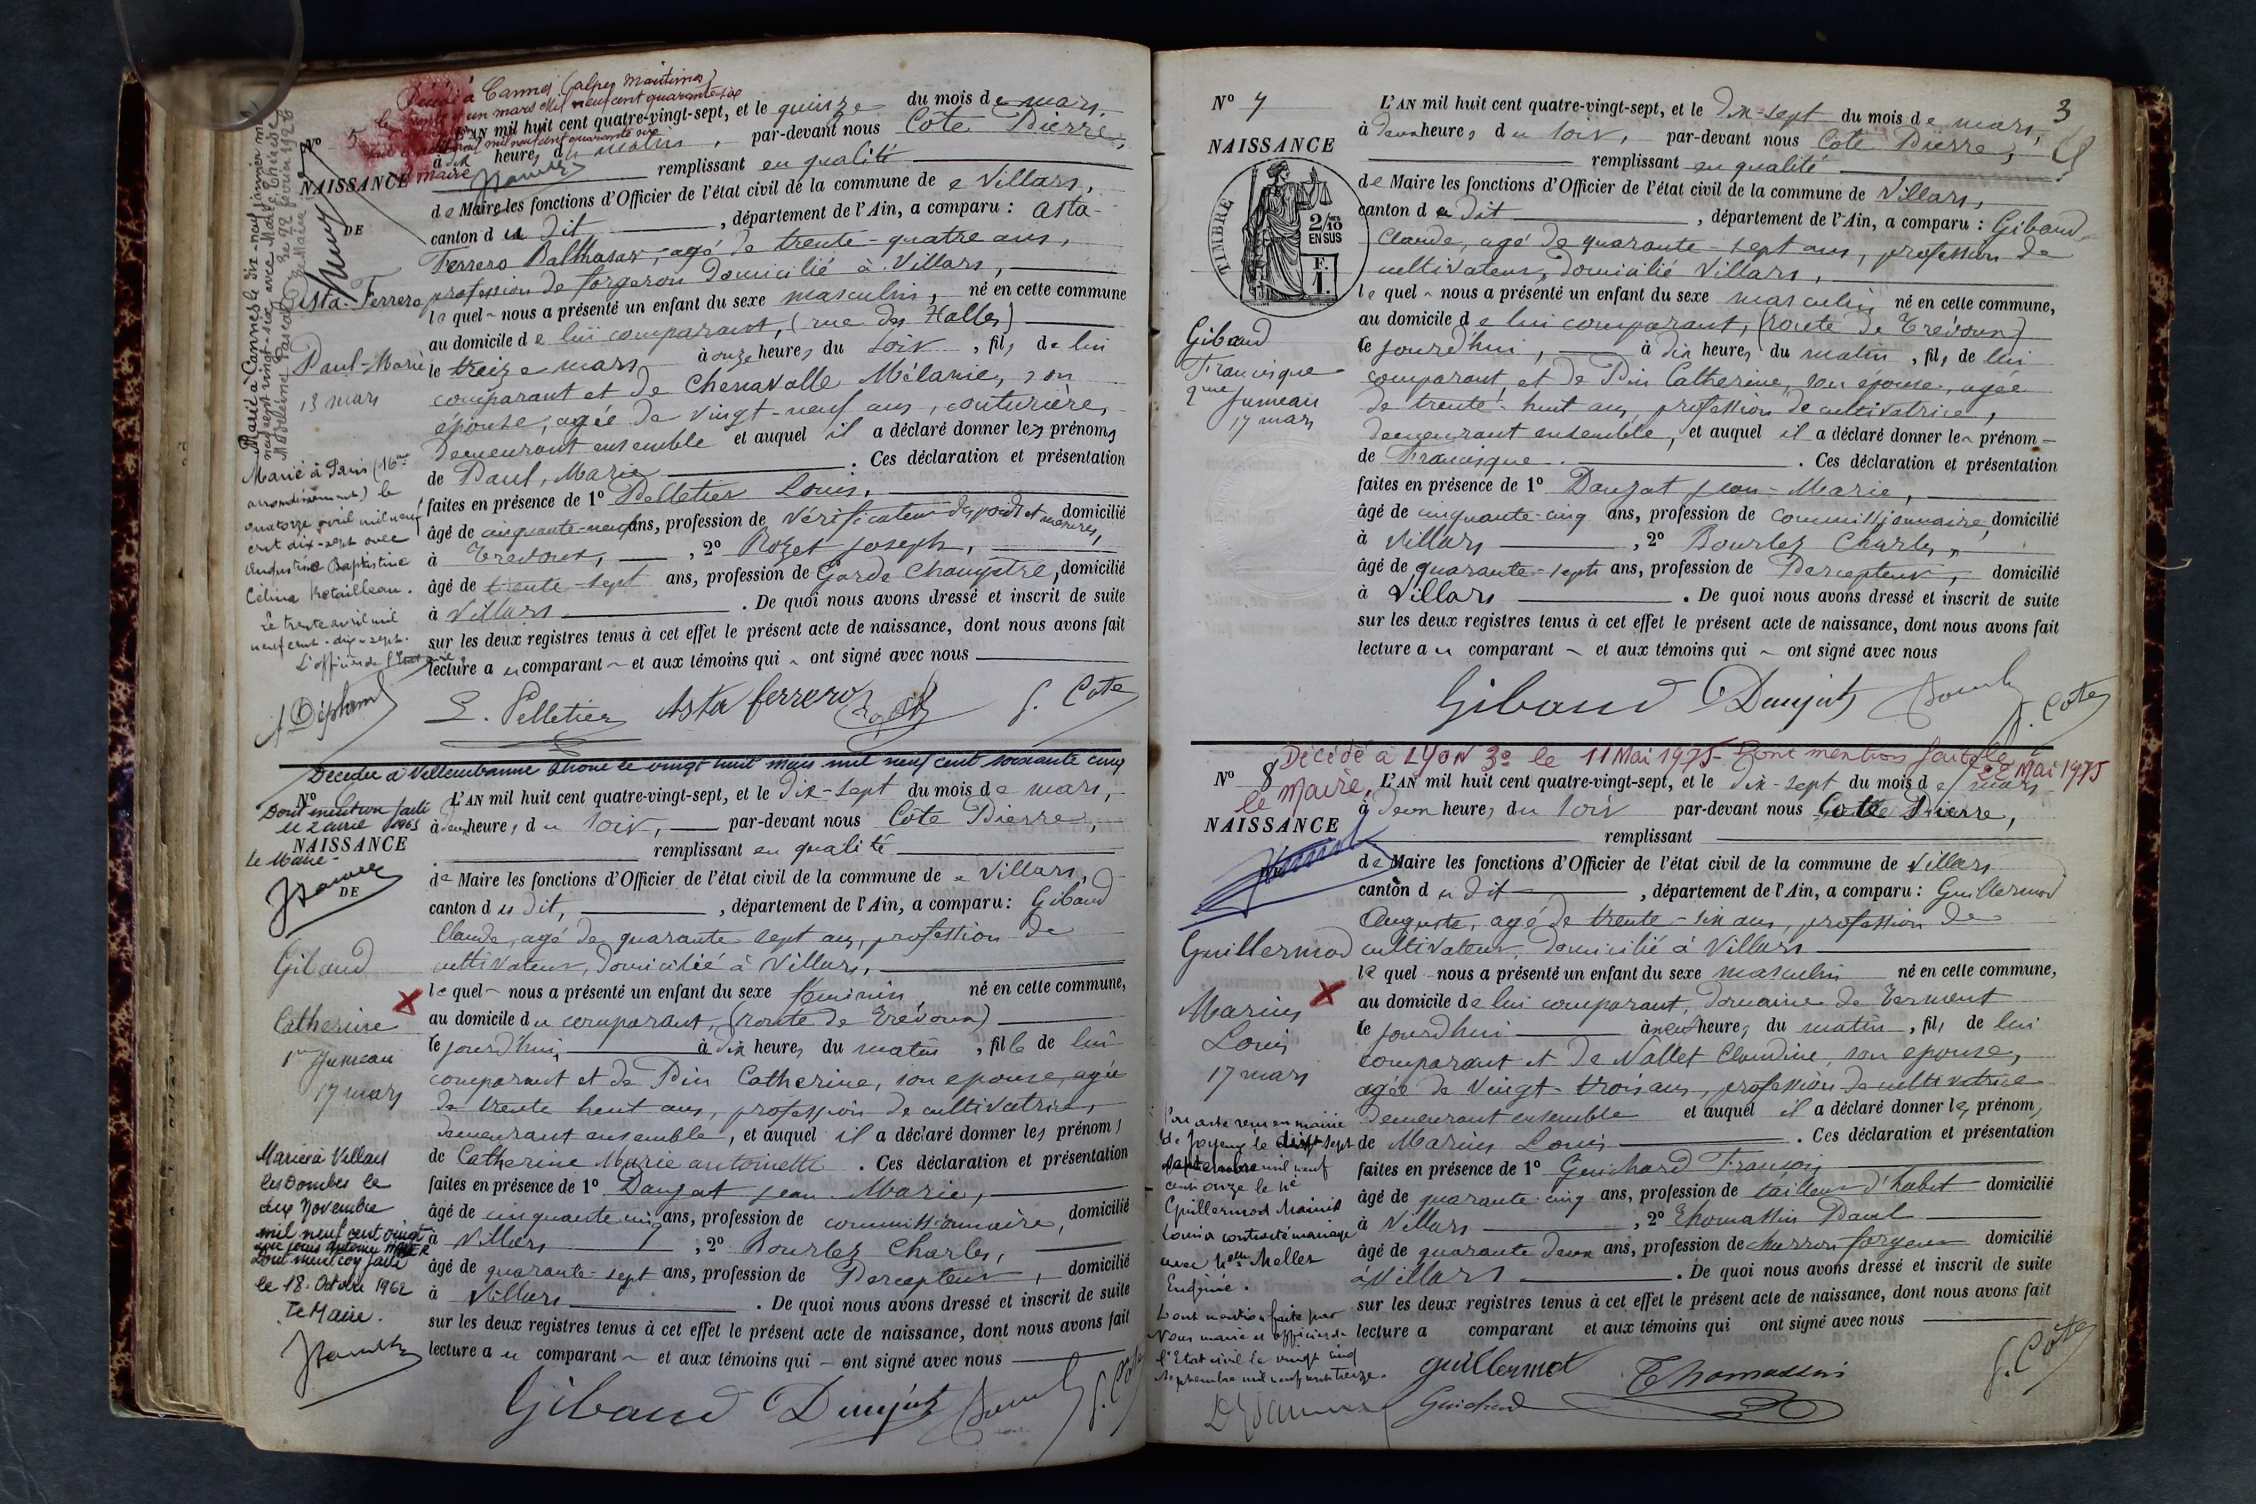 Décédé à Cannes (alpes Maritimes)
le trente un mars Mil neuf cent quarante six
Nº 5
L'AN mil huit cent quatre-vingt-sept, et le quinze du mois de mars,
à dix heures du matin, par-devant nous Cote Pierre,
maire
NAISSANCE
remplissant en qualité
DE
de Maire les fonctions d'Officier de l'état civil de la commune de Villars,
canton du dit, département de l'Ain, a comparu : Asta-
Ferrero Balthasar, agé de trente-quatre ans,
profession de forgeron domicilié à Villars,
Asta-Ferrero
lequel nous a présenté un enfant du sexe masculin, né en cette commune
au domicile de lui comparant, (rue des Halles)
Paul-Marie
le treize mars à onze heures du soir, fils de lui
13 mars
comparant et de Chenavalle Mélanie, son
épouse, agée de vingt-neuf ans, couturière,
demeurant ensemble et auquel il a déclaré donner les prénoms
de Paul, Marie. Ces déclaration et présentation
faites en présence de 1º Pelletier Louis,
âgé de cinquante-neuf ans, profession de vérificateur des poids et mesures, domicilié
à Trevoux, 2º Rozet Joseph,
âgé de trente-sept ans, profession de Garde Champêtre, domicilié
à Villars. De quoi nous avons dressé et inscrit de suite
sur les deux registres tenus à cet effet le présent acte de naissance, dont nous avons fait
lecture au comparant et aux témoins qui ont signé avec nous
Marié à Cannes le dix-neuf janvier mil
neuf cent vingt-six avec Marie Thérèse
Madeleine Pascal
Le 22 février 1926
Le Maire
Marié à Paris (16me
arrondissement) le
quatorze avril mil neuf
cent dix-sept avec
Augustine Baptistine
Célina Retailleau.
Le trente avril mil
neuf cent-dix-sept.
L'officier de l'Etat civil.
L. Pelletier Asta ferrero Rozet J. Cote
Décédée à Villeurbanne Rhone le vingt huit mars mil neuf cent soixante cinq
Nº
Dont mention faite
le 2 avril 1965
NAISSANCE
le Maire
DE
L'AN mil huit cent quatre-vingt-sept, et le dix-sept du mois de mars,
à deux heures du soir, par-devant nous Cote Pierre,
remplissant en qualité
de Maire les fonctions d'Officier de l'état civil de la commune de Villars,
canton du dit, département de l'Ain, a comparu : Gibaud
Claude, agé de quarante sept ans, profession de
Gibaud
cultivateur, domicilié à Villars,
lequel nous a présenté un enfant du sexe féminin, né en cette commune,
Catherine
au domicile du comparant, (route de Trévoux)
1er Jumeau
le jourd'hui, à dix heures du matin, fille de lui
17 mars
comparant et de Pin Catherine, son epouse, agée
de trente huit ans, profession de cultivatrice,
demeurant ensemble, et auquel il a déclaré donner les prénoms
de Catherine Marie antoinette. Ces déclaration et présentation
faites en présence de 1º Danjat Jean-Marie,
âgé de cinquante cinq ans, profession de commissionnaire, domicilié
à Villars, 2º Bourlez Charles,
âgé de quarante-sept ans, profession de Percepteur, domicilié
à Villars. De quoi nous avons dressé et inscrit de suite
sur les deux registres tenus à cet effet le présent acte de naissance, dont nous avons fait
lecture au comparant et aux témoins qui ont signé avec nous
Mariée à Villars
les Dombes le
deux Novembre
mil neuf cent vingt
dont mention faite
le 18 Octobre 1962
Le Maire.
Gibaud Danjat J. Cote
3
Nº 7
NAISSANCE
TIMBRE
2/10
EN SUS
F.
1.
L'AN mil huit cent quatre-vingt-sept, et le dix-sept du mois de mars,
à deux heures du soir, par-devant nous Cote Pierre,
remplissant en qualité
de Maire les fonctions d'Officier de l'état civil de la commune de Villars,
canton du dit, département de l'Ain, a comparu : Gibaud
Claude, agé de quarante-sept ans, profession de
cultivateur, domicilié Villars,
lequel nous a présenté un enfant du sexe masculin né en cette commune,
Gibaud
au domicile de lui comparant, (route de Trévoux)
Francisque
le jourd'hui, à dix heures du matin, fils de lui
2me Jumeau
comparant, et de Pin Catherine, son épouse, agée
17 mars
de trente-huit ans, profession de cultivatrice,
demeurant ensemble, et auquel il a déclaré donner le prénom
de Francisque. Ces déclaration et présentation
faites en présence de 1º Danjat Jean-Marie,
âgé de cinquante-cinq ans, profession de commissionnaire, domicilié
à Villars, 2º Bourlez Charles,
âgé de quarante-sept ans, profession de Percepteur, domicilié
à Villars. De quoi nous avons dressé et inscrit de suite
sur les deux registres tenus à cet effet le présent acte de naissance, dont nous avons fait
lecture au comparant et aux témoins qui ont signé avec nous
Gibaud Danjat J. Cote
Décédé à LYON 3e le 11 Mai 1975 - Dont mention faite le
22 Mai 1975
le Maire,
Nº 8
NAISSANCE
L'AN mil huit cent quatre-vingt-sept, et le dix-sept du mois de mars
à deux heures du soir par-devant nous Cote Pierre,
remplissant
de Maire les fonctions d'Officier de l'état civil de la commune de Villars
canton du dit, département de l'Ain, a comparu : Guillermod
Auguste, agé de trente-six ans, profession de
Guillermod
cultivateur, domicilié à Villars
lequel nous a présenté un enfant du sexe masculin né en cette commune,
Marius
au domicile de lui comparant, domaine de Verment
Louis
le jourd'hui à neuf heures du matin, fils de lui
17 mars
comparant et de Nallet Claudine, son epouse,
agée de vingt-trois ans, profession de cultivatrice
demeurant ensemble et auquel il a déclaré donner les prénoms
de Marius Louis. Ces déclaration et présentation
faites en présence de 1º Guichard François
âgé de quarante-cinq ans, profession de tailleur d'habit domicilié
à Villars, 2º Thomassin Paul
âgé de quarante deux ans, profession de charron forgeron domicilié
à Villars. De quoi nous avons dressé et inscrit de suite
sur les deux registres tenus à cet effet le présent acte de naissance, dont nous avons fait
lecture a comparant et aux témoins qui ont signé avec nous
Par acte reçu en mairie
de Joyeux le dix sept
septembre mil neuf
cent onze le né
Guillermod Marius
Louis a contracté mariage
avec Melle Mellet
Eugénie.
Dont mention faite par
Nous maire et officier de
l'Etat civil le vingt cinq
septembre mil neuf cent treize.
guillermot Thomassin J. Cote
Guichard